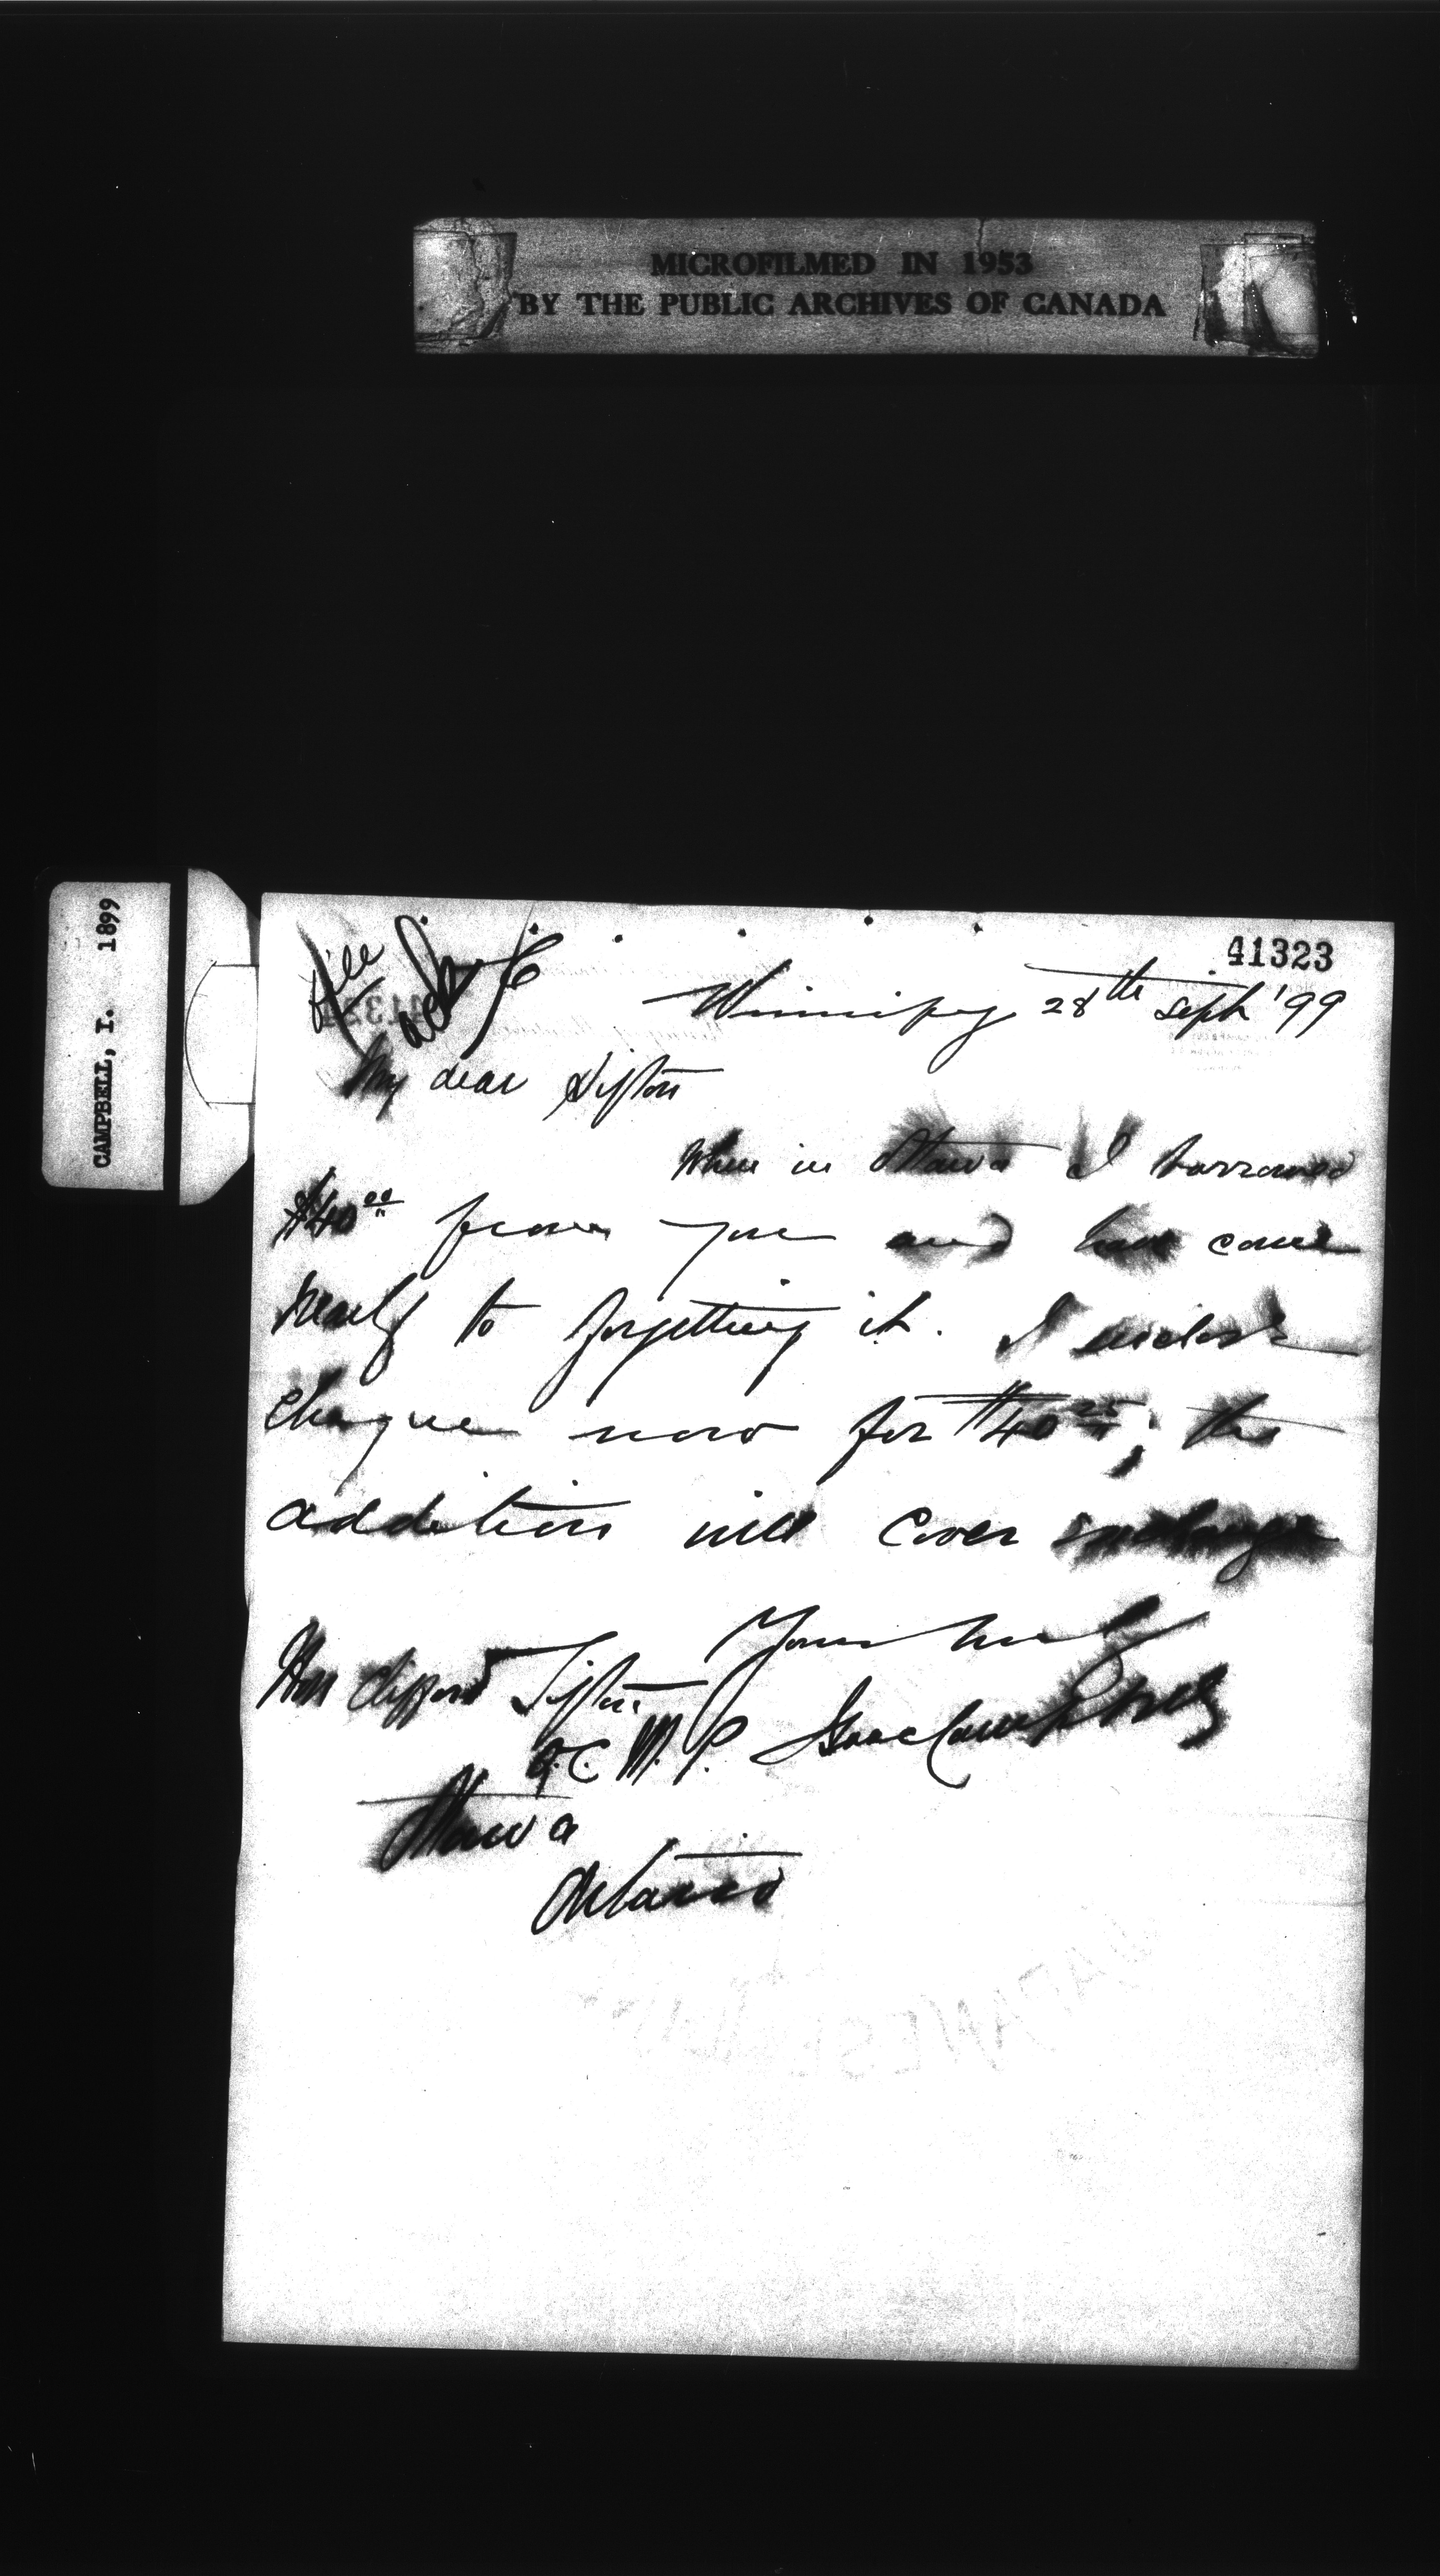 MICROFILMED IN 1953
BY THE PUBLIC ARCHIVES OF CANADA
CAMPBELL, I. 1899
41323
File
ack
Winnipeg 28th Sept '99
My dear Sifton
When in Ottawa I borrowed
$40.00 from you and have come
nearly to forgetting it. I enclose
cheque now for $40.25; the
addition will cover exchange
Yours truly
Isaac Campbell
Hon Clifford Sifton
Q.C. M.P.
Ottawa
Ontario